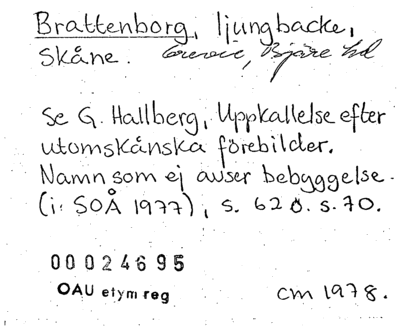 Brattenborg, ljungbacke,
Skåne. Grevie, Bjäre hd
Se G. Hallberg, Uppkallelse efter
utomskånska förebilder.
Namn som ej avser bebyggelse.
(i: SOÅ 1977), s. 62 o. s. 70.
00024695
OAU etym reg
CM 1978.